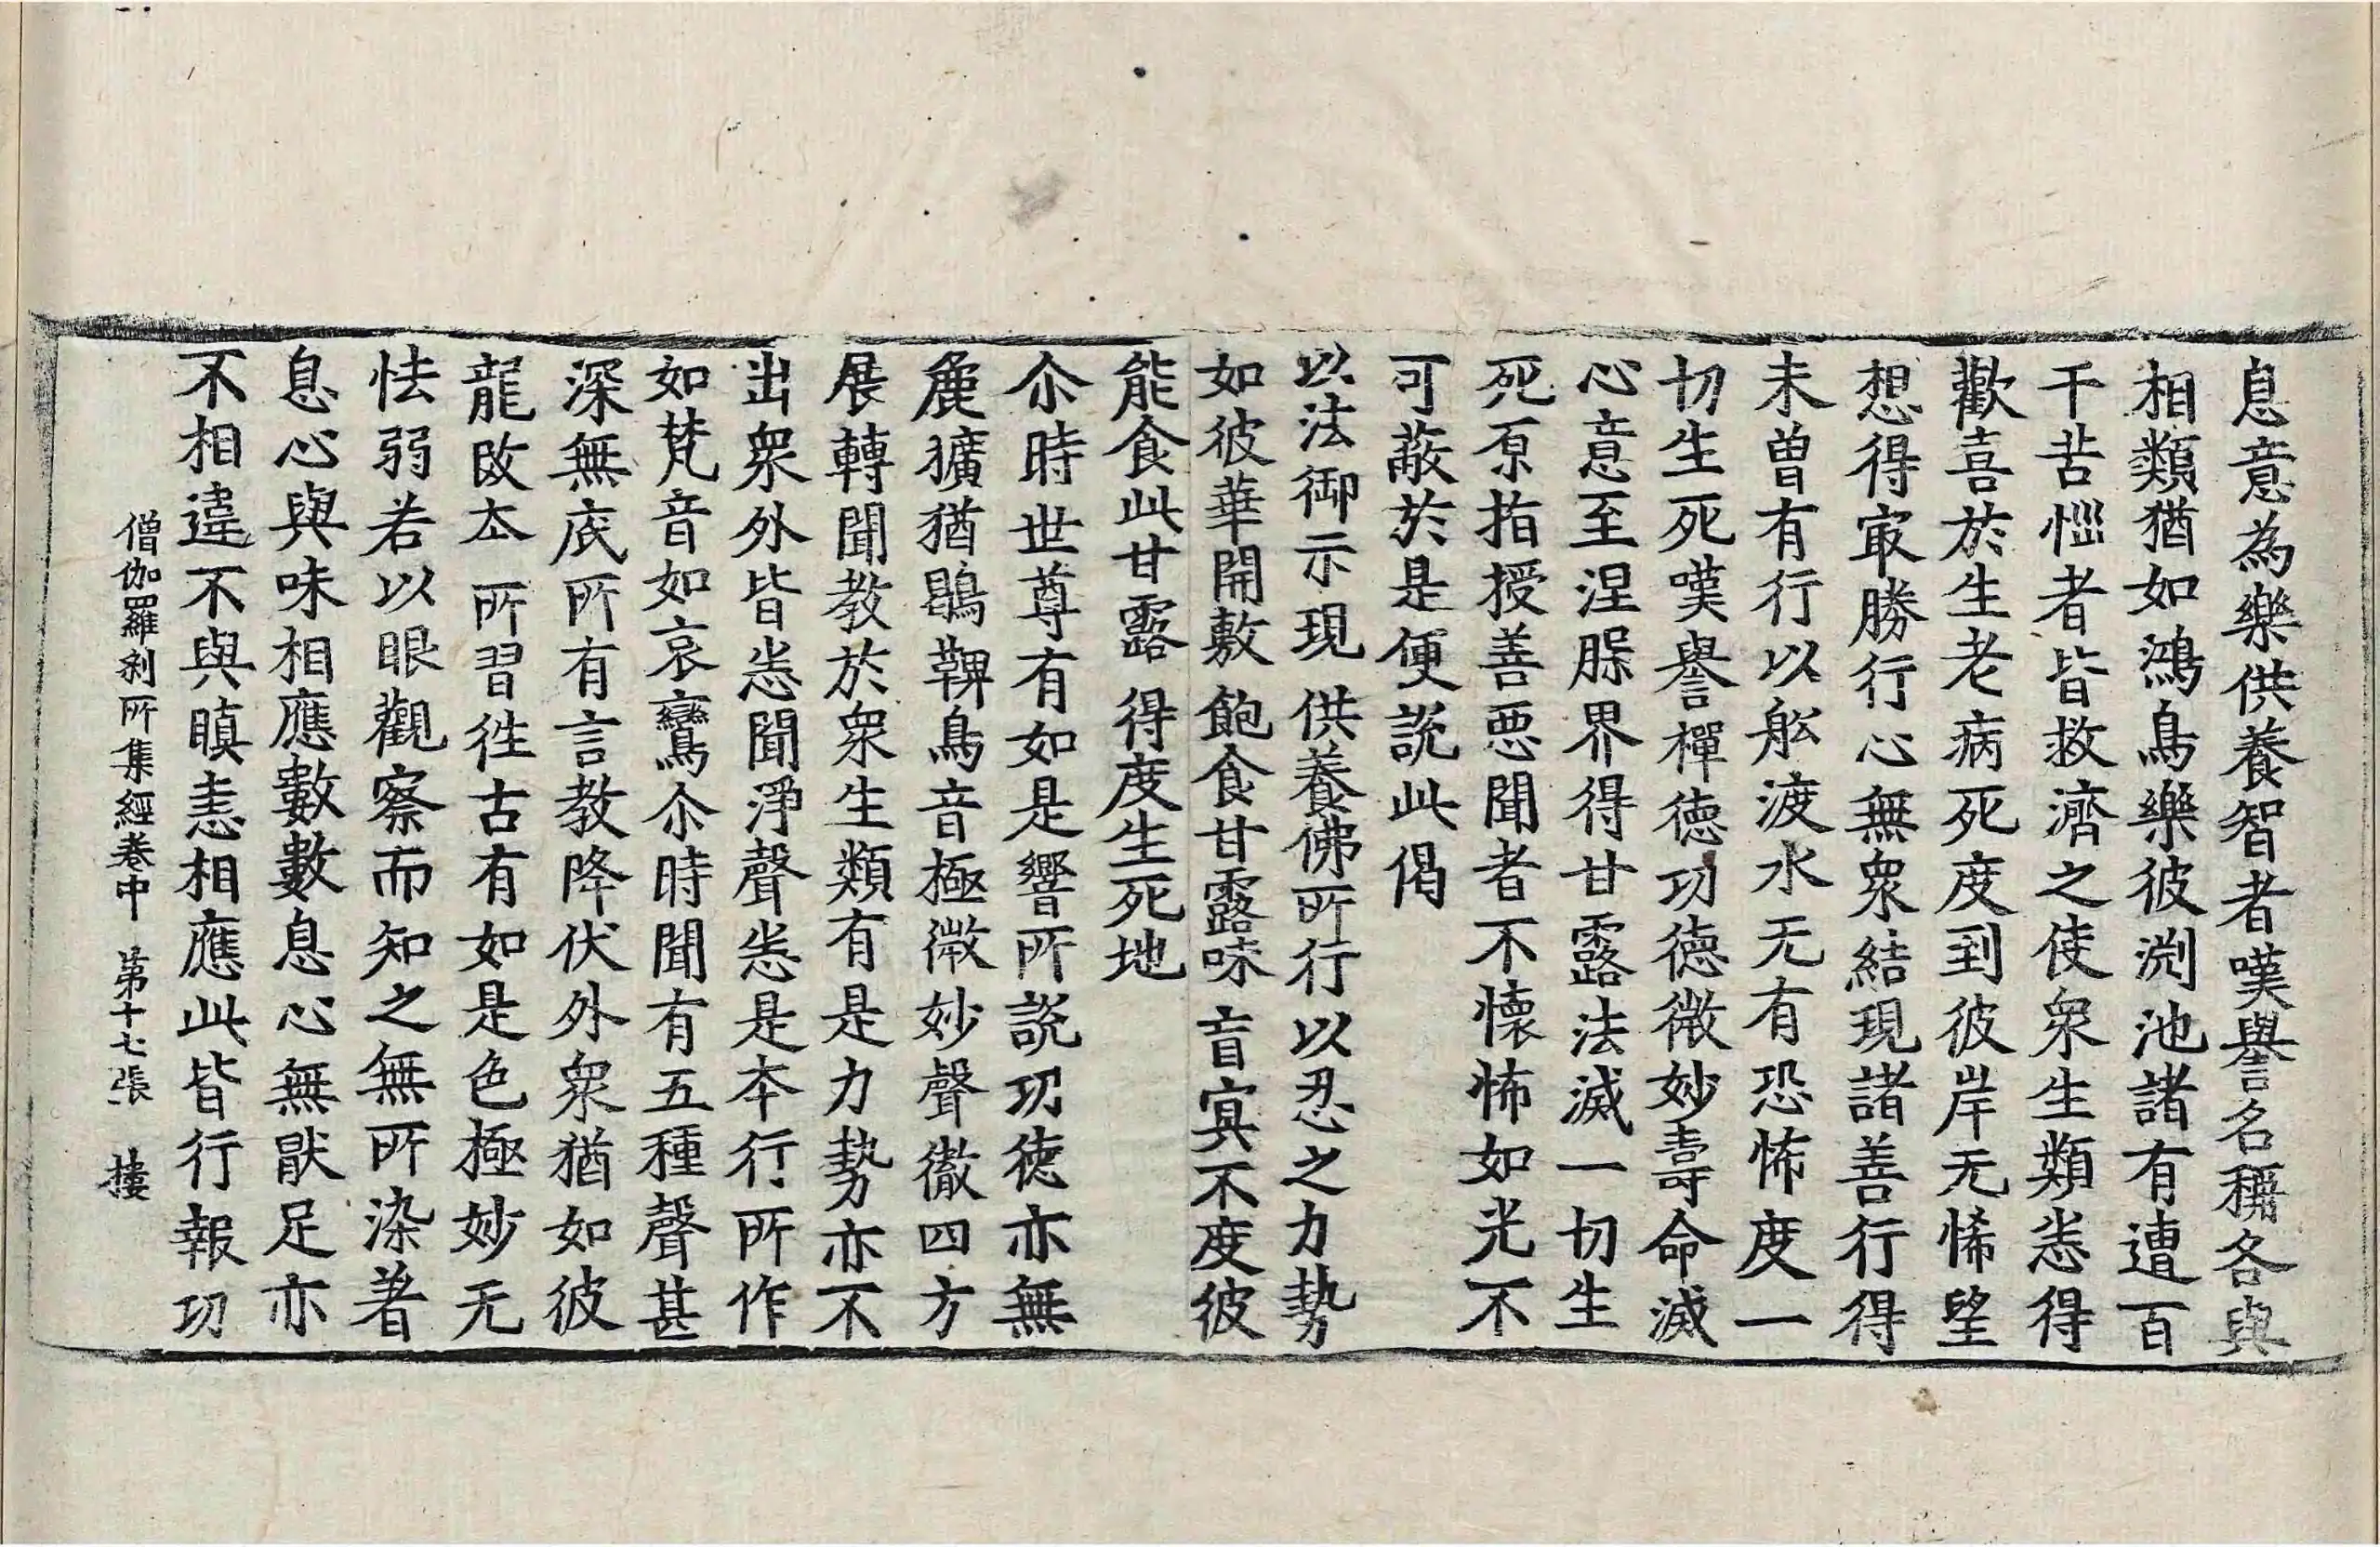 息意為樂供養智者嘆譽名稱各與
相類猶如鴻鳥樂彼渕池諸有遭百
千苦惱者皆救濟之使衆生類悉得
歡喜於生老病死度到彼岸无悕望
想得最勝行心無衆結現諸善行得
未曾有行以舩渡水无有恐怖度一
切生死嘆譽禪德功德微妙壽命滅
心意至涅槃界得甘露法滅一切生
死原指授善惡聞者不懷怖如光不
可蔽於是便說此偈
以法御示現 供養佛所行 以忍之力勢
如彼華開敷 飽食甘露味 盲冥不度彼
能食此甘露 得度生死地
尒時世尊有如是響所說功德亦無
麁獷猶鶡鞞鳥音極微妙聲徹四方
展轉聞教於衆生類有是力勢亦不
出衆外皆悉聞淨聲悉是本行所作
如梵音如哀鸞尒時聞有五種聲甚
深無底所有言教降伏外衆猶如彼
龍改本所習徃古有如是色極妙无
怯弱若以眼觀察而知之無所染著
息心與味相應數數息心無猒足亦
不相違不與瞋恚相應此皆行報功
僧伽羅刹所集經卷中 第十七張 摟